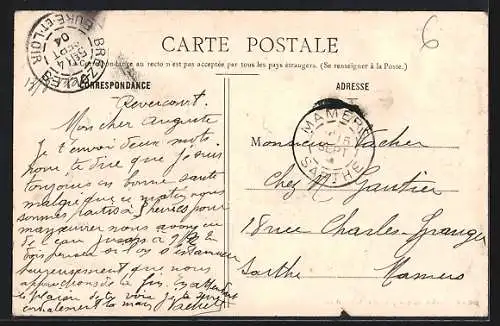 CARTE POSTALE
Correspondance au recto n'est pas acceptée par tous les pays étrangers. (Se renseigner à la Poste.)
CORRESPONDANCE
ADRESSE
6
EURE-ET-LOIR
14
SEPT
04
MAMERS
15
SEPT
SARTHE
Revercourt
Mon cher Auguste
Je t'envoi deux mots
pour te dire que je suis
toujours en bonne santé
malgré que ce matin nous
sommes partis à heures pour
manœuvrer nous avons eu
de l'eau jusqu'à
heureusement que nous
approchons de la fin. En attendant
le plaisir de te voir je te serre
cordialement la main Vacher
Monsieur Vacher
Chez M. Gautier
18 rue Charles Granger
Sarthe Mamers